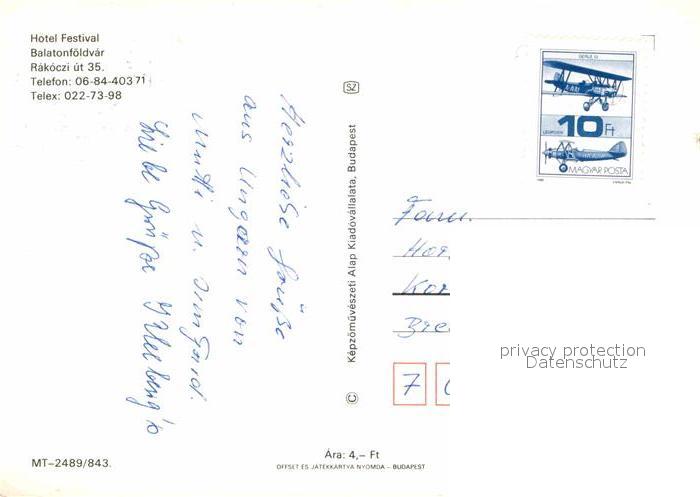 Hotel Festival
Balatonföldvár
Rákóczi út 35.
Telefon: 06-84-40371
Telex: 022-73-98
Herzliche Grüße
aus Ungarn von
Mutti u. Irmgard.
Liebe Grüße
SZ
Képzőművészeti Alap Kiadóvállalata, Budapest
©
10 Ft
MAGYAR POSTA
Fam.
Hor
Kor
Bre
7
privacy protection
Datenschutz
MT-2489/843.
Ára: 4,- Ft
OFFSET ÉS JÁTÉKKÁRTYA NYOMDA - BUDAPEST